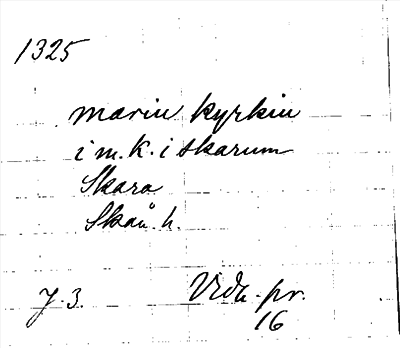 1325
mariu kyrkiu
i m.k. i skarum
Skara
Skån. h.
J. 3. Vidh. pr.
16